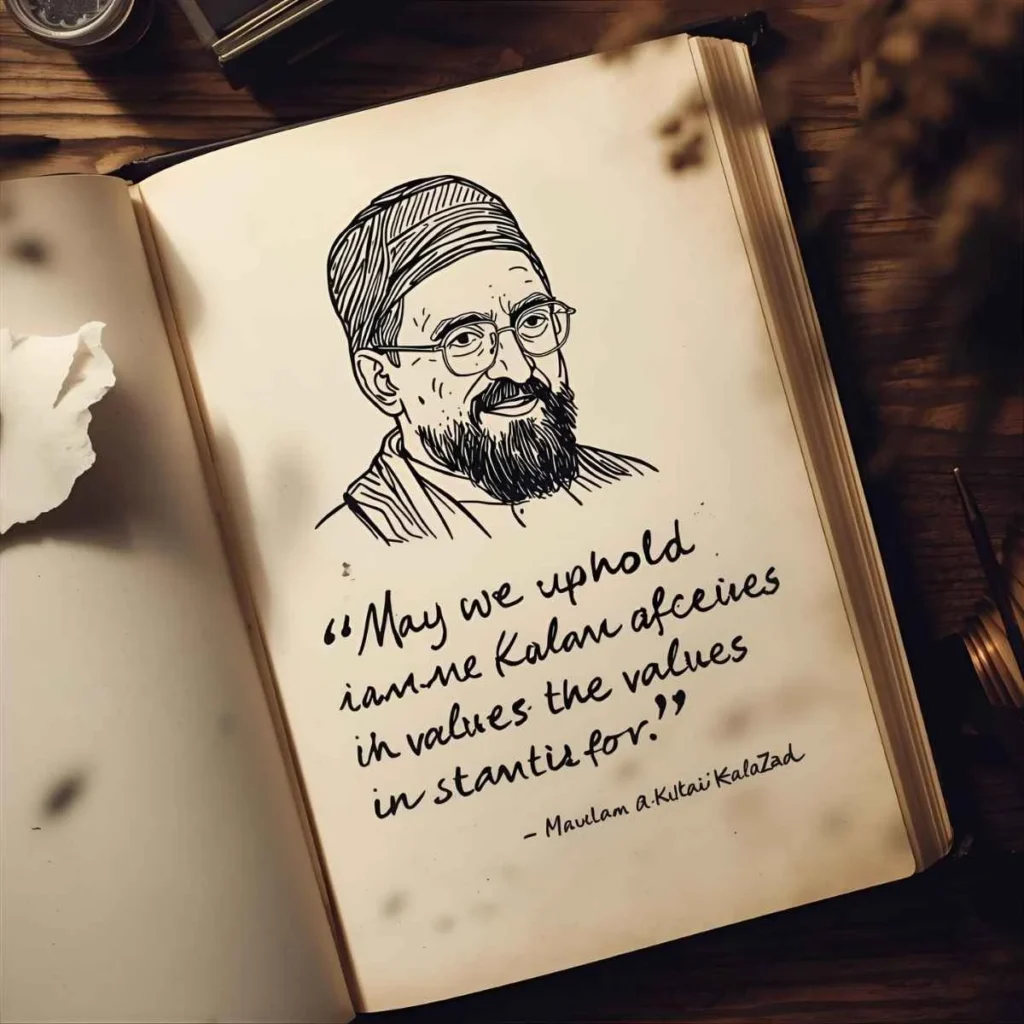 “May we uphold
iamme Kalam afceives
in values the values
in stantis for.”
- Maulam a.Kutai KalaZad